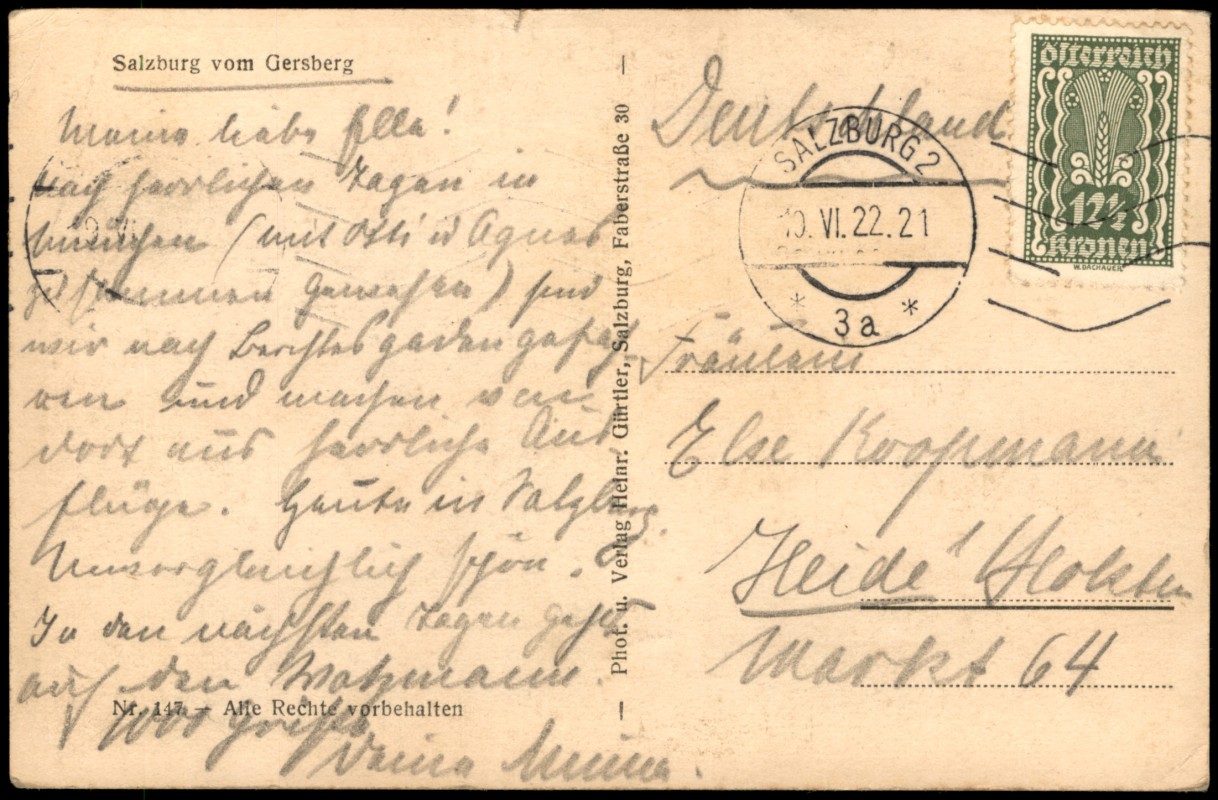 Salzburg vom Gersberg
Meine liebe Ella!
Nach herrlichen Tagen in
München (mit Otti u Agnes
zusammen gewesen) sind
wir nach Berchtesgaden gefah-
ren und machen von
dort aus herrliche Aus-
flüge. Heute in Salzburg.
Unvergleichlich schön.
In den nächsten Tagen gehts
auf den Watzmann.
1000 Grüße
Deine
Nr. 147 — Alle Rechte vorbehalten
Phot. u. Verlag Heinr. Gürtler, Salzburg, Faberstraße 30
Deutschland
SALZBURG 2
VI. 22. 21
* 3a *
Österreich
12½
Kronen
W. DACHAUER
Fräulein
Else Koopmann
Heide Holstein
Markt 64